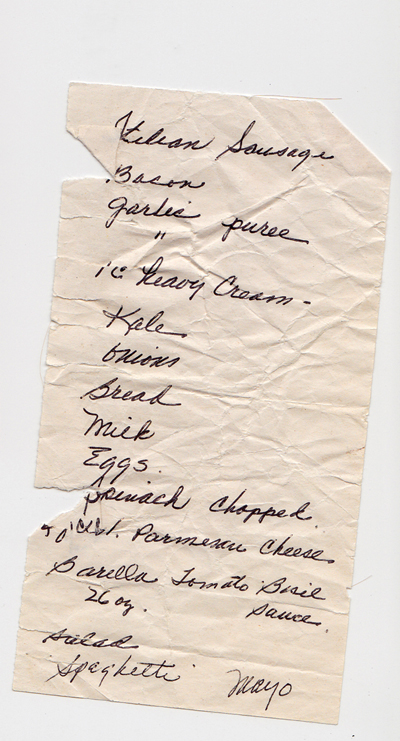 Italian Sausage
Bacon
garlic
" puree
1 c heavy Cream -
Kale
onions
Bread
Milk
Eggs.
Spinach chopped.
Parmesan Cheese
Barilla Tomato Basil
26 oz. Sauce.
Salad
Spaghetti Mayo